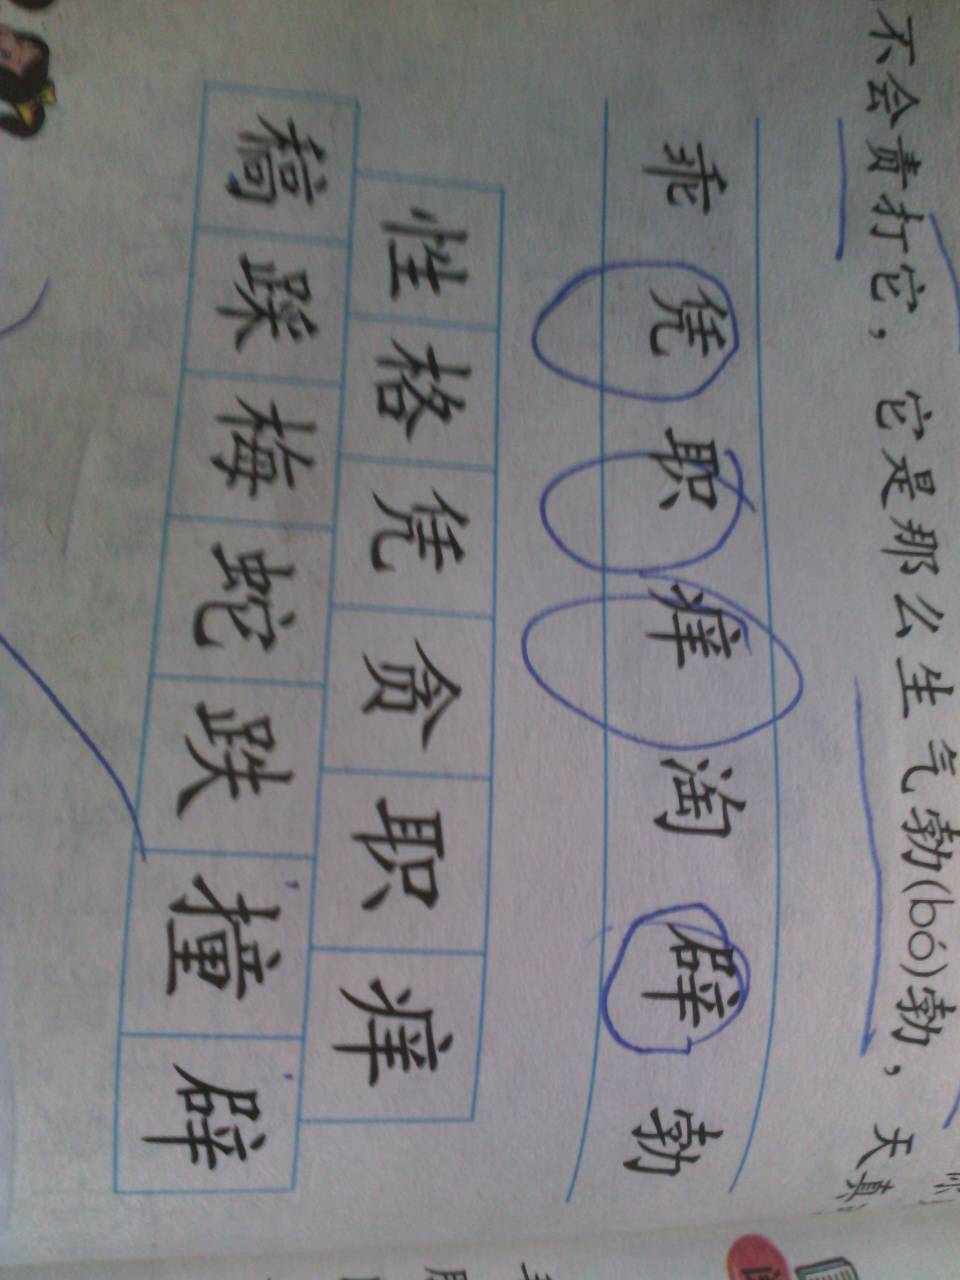 不会责打它，它是那么生气勃(bó)勃，天真
乖凭职痒淘辟勃
性格凭贪职痒
稿蹂梅蛇跌撞辟